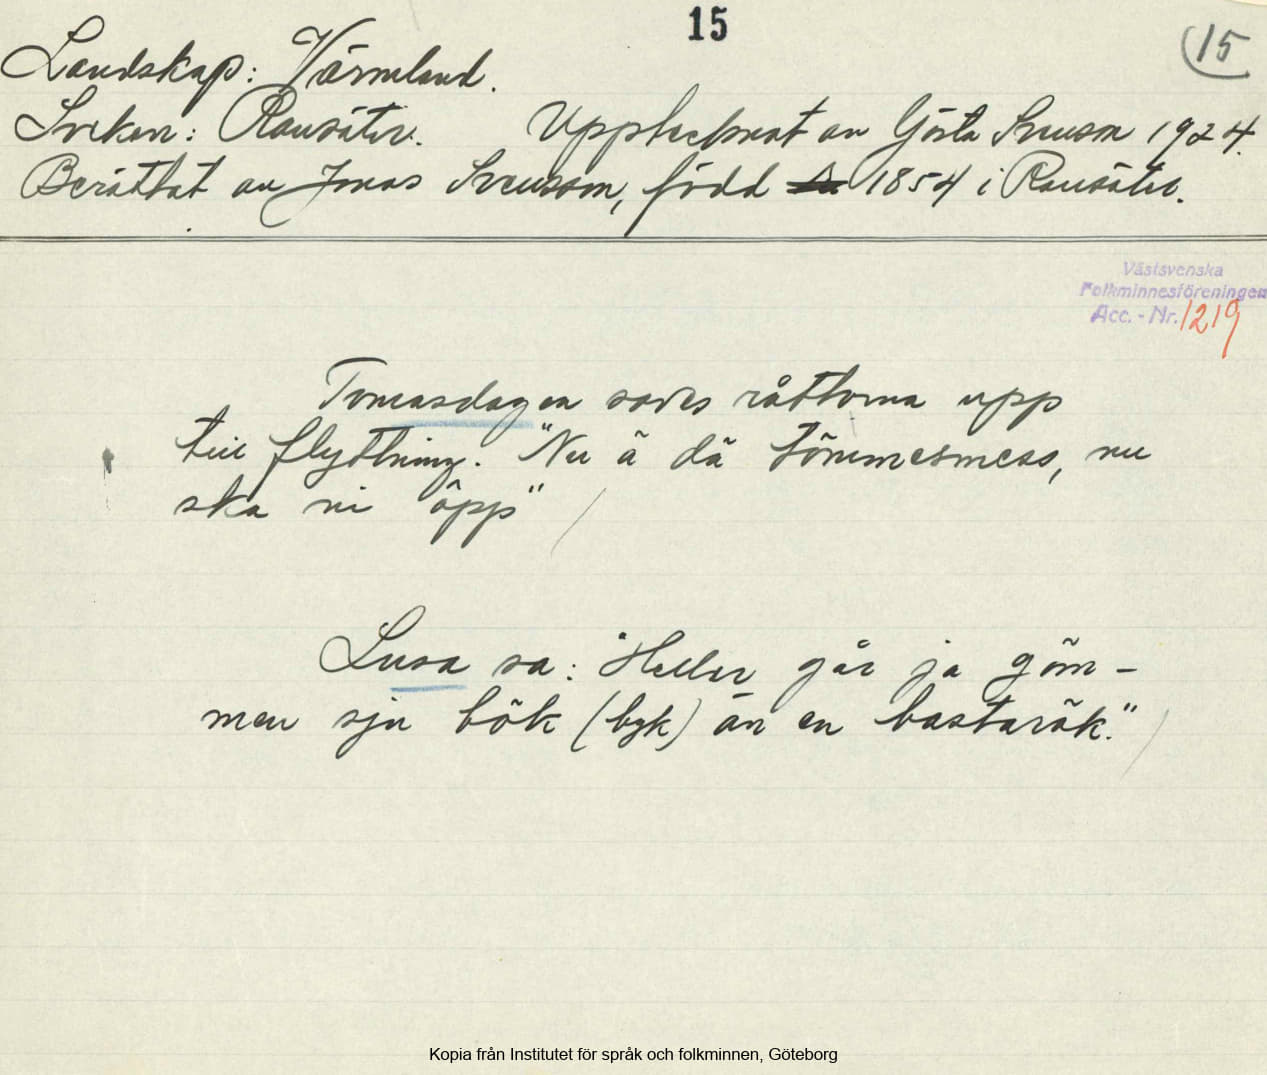 15
15
Landskap: Värmland.
Socken: Ransäter. Upptecknat av Gösta Svensson 1924.
Berättat av Jonas Svensson, född 1854 i Ransäter.
Västsvenska
Folkminnesföreningen
Acc. - Nr. 1219
Tomasdagen sades råttorna upp
till flyttning. "Nu ä dä tömmesmess, nu
ska ni öpp"
Lusa sa: "Heller går ja göm-
men sju bök (byk) än en bastarök."
Kopia från Institutet för språk och folkminnen, Göteborg